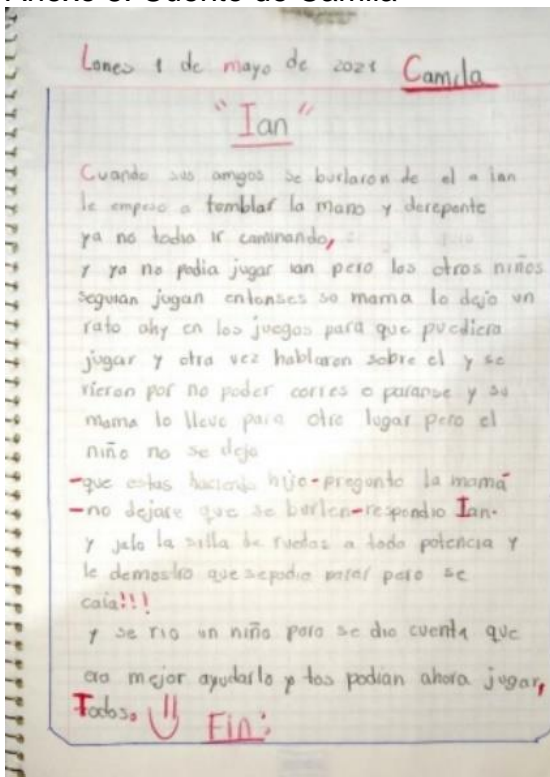 Anexo 5. Cuento de Camila
Lones 1 de mayo de 2021 Camila
"Ian"
Cuando sus amgos se burlaron de el a ian
le empeso a temblar la mano y derepente
ya no todia ir caminando,
y ya no podia jugar ian pero los otros niños
seguian jugan entonses so mama lo dejo un
rato ahy en los juegos para que puediera
jugar y otra vez hablaron sobre el y se
rieron por no poder corres o pararse y su
mama lo llevo para otro lugar pero el
niño no se dejo
-que estas haciendo hijo-pregonto la mamá
-no dejare que se burlen-respondio Ian.
y jalo la silla de ruedas a toda potencia y
le demostro que sepodia parar pero se
caia!!!
y se rio un niño pero se dio cuenta que
era mejor ayudarlo y tos podian ahora jugar,
Todos.
Fin: